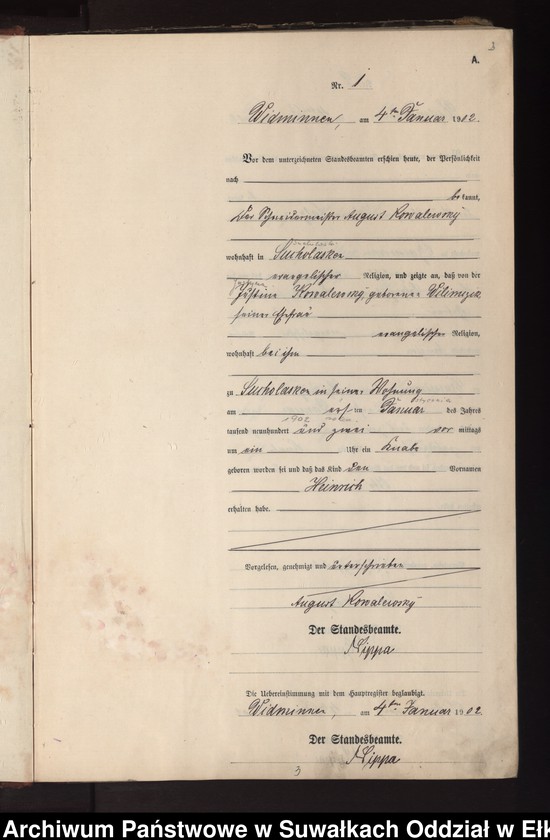 3
A.
Nr. 1
Widminnen, am 4ten Januar 1902.
Vor dem unterzeichneten Standesbeamten erschien heute, der Persönlichkeit
nach
bekannt,
der Schneidermeister August Kowalewsky
wohnhaft in Sucholasken
evangelischer Religion, und zeigte an, daß von der
Justine Kowalewsky geborenen Wilimczik
seiner Ehefrau
evangelischer Religion,
wohnhaft bei ihm
zu Sucholasken in seiner Wohnung
am ersten Januar des Jahres
tausend neunhundert und zwei vor mittags
um ein Uhr ein Knabe
geboren worden sei und daß das Kind den Vornamen
Heinrich
erhalten habe.
Vorgelesen, genehmigt und unterschrieben
August Kowalewsky
Der Standesbeamte.
Nippa
Die Uebereinstimmung mit dem Hauptregister beglaubigt.
Widminnen, am 4ten Januar 1902.
Der Standesbeamte.
Nippa
3
Archiwum Państwowe w Suwałkach Oddział w Ełk